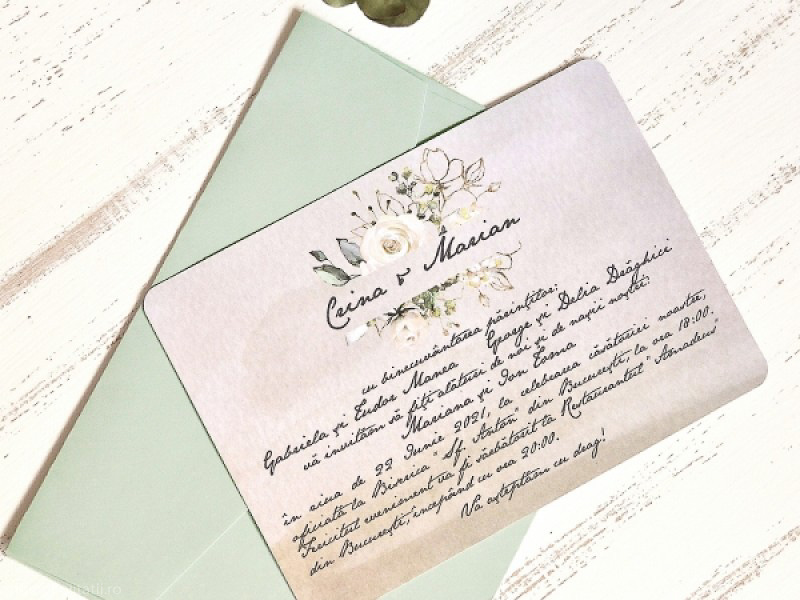 Crina & Marian
cu binecuvântarea părinților:
Gabriela și Tudor Manea George și Delia Drăghici
vă invităm să fiți alături de noi și de nașii noștri:
Mariana și Ion Toma
în ziua de 22 Iunie 2021, la celebrarea căsătoriei noastre,
oficiată la Biserica "Sf. Anton" din București, la ora 18:00.
Fericitul eveniment va fi sărbătorit la Restaurantul "Amadeus"
din București, începând cu ora 20:00.
Vă așteptăm cu drag!